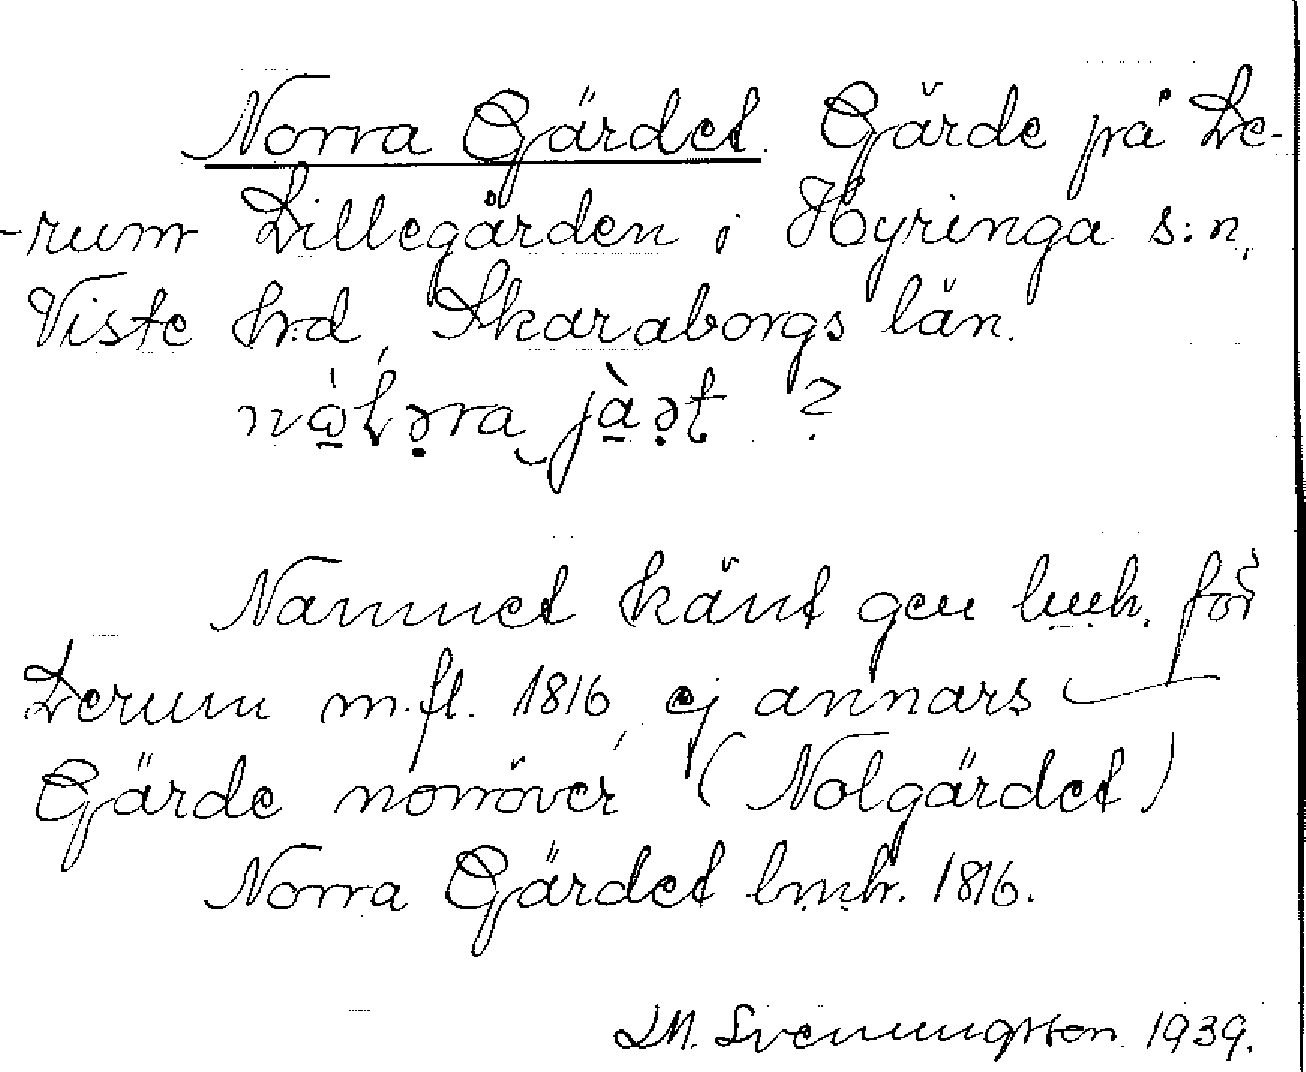 Norra Gärdet. Gärde på Le-
-rum Lillegården i Hyringa s:n,
Viste hrd, Skaraborgs län.
?
Namnet känt gen lmh. för
Lerum m.fl. 1816, ej annars
Gärde norröver (Nolgärdet)
Norra Gärdet lmh. 1816.
LM. Svenungsson 1939.